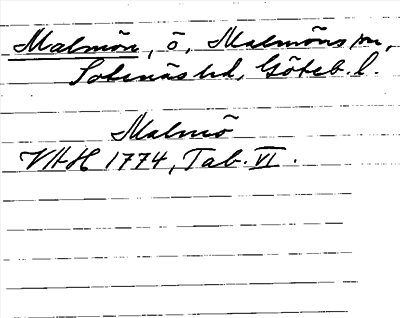 Malmön, ö, Malmöns sn,
Sotenäs hd, Göteb. l.
Malmö
VAH 1774, Tab. VI.